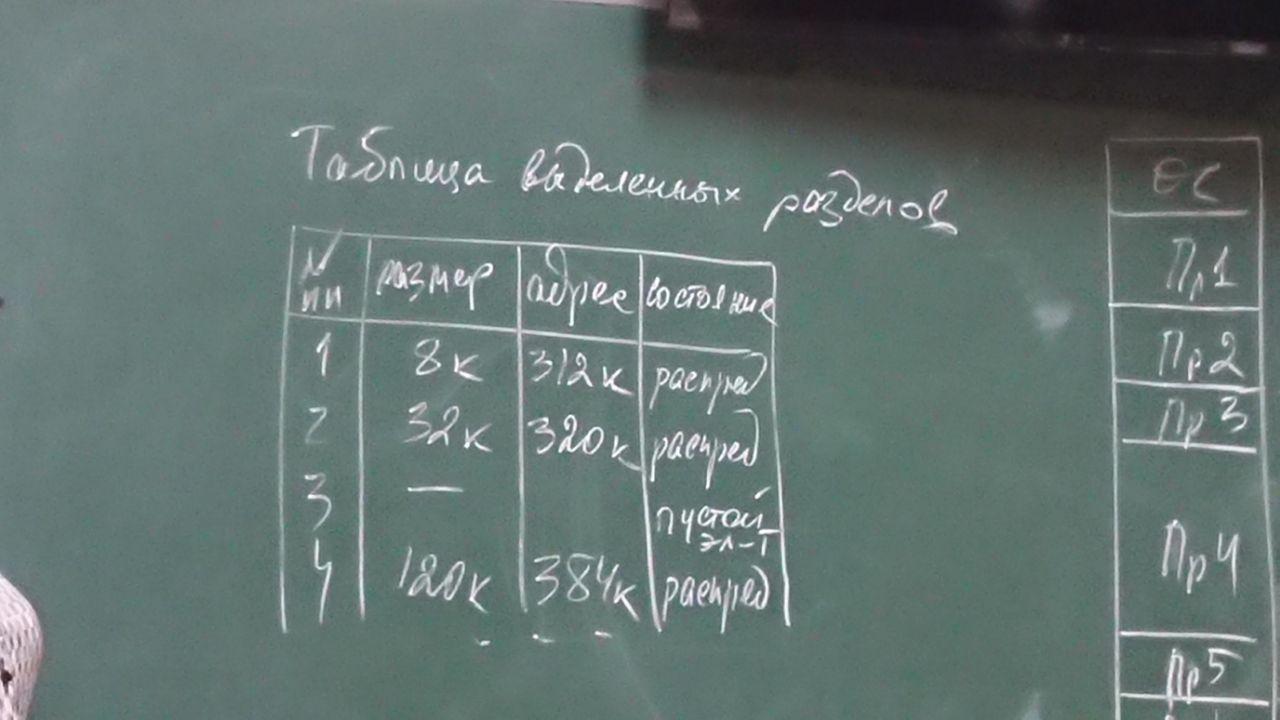 Таблица выделенных разделов
№ пп размер адрес состояние
1 8к 312к распред
2 32к 320к распред
3 — пустой эл-т
4 120к 384к распред
- - -
ОС
Пр1
Пр2
Пр3
Пр4
Пр5